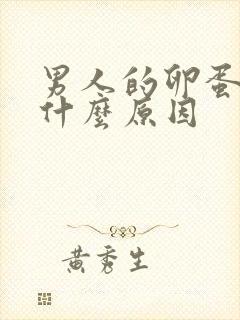 男人的卵蛋
什麼原因
黃秀生